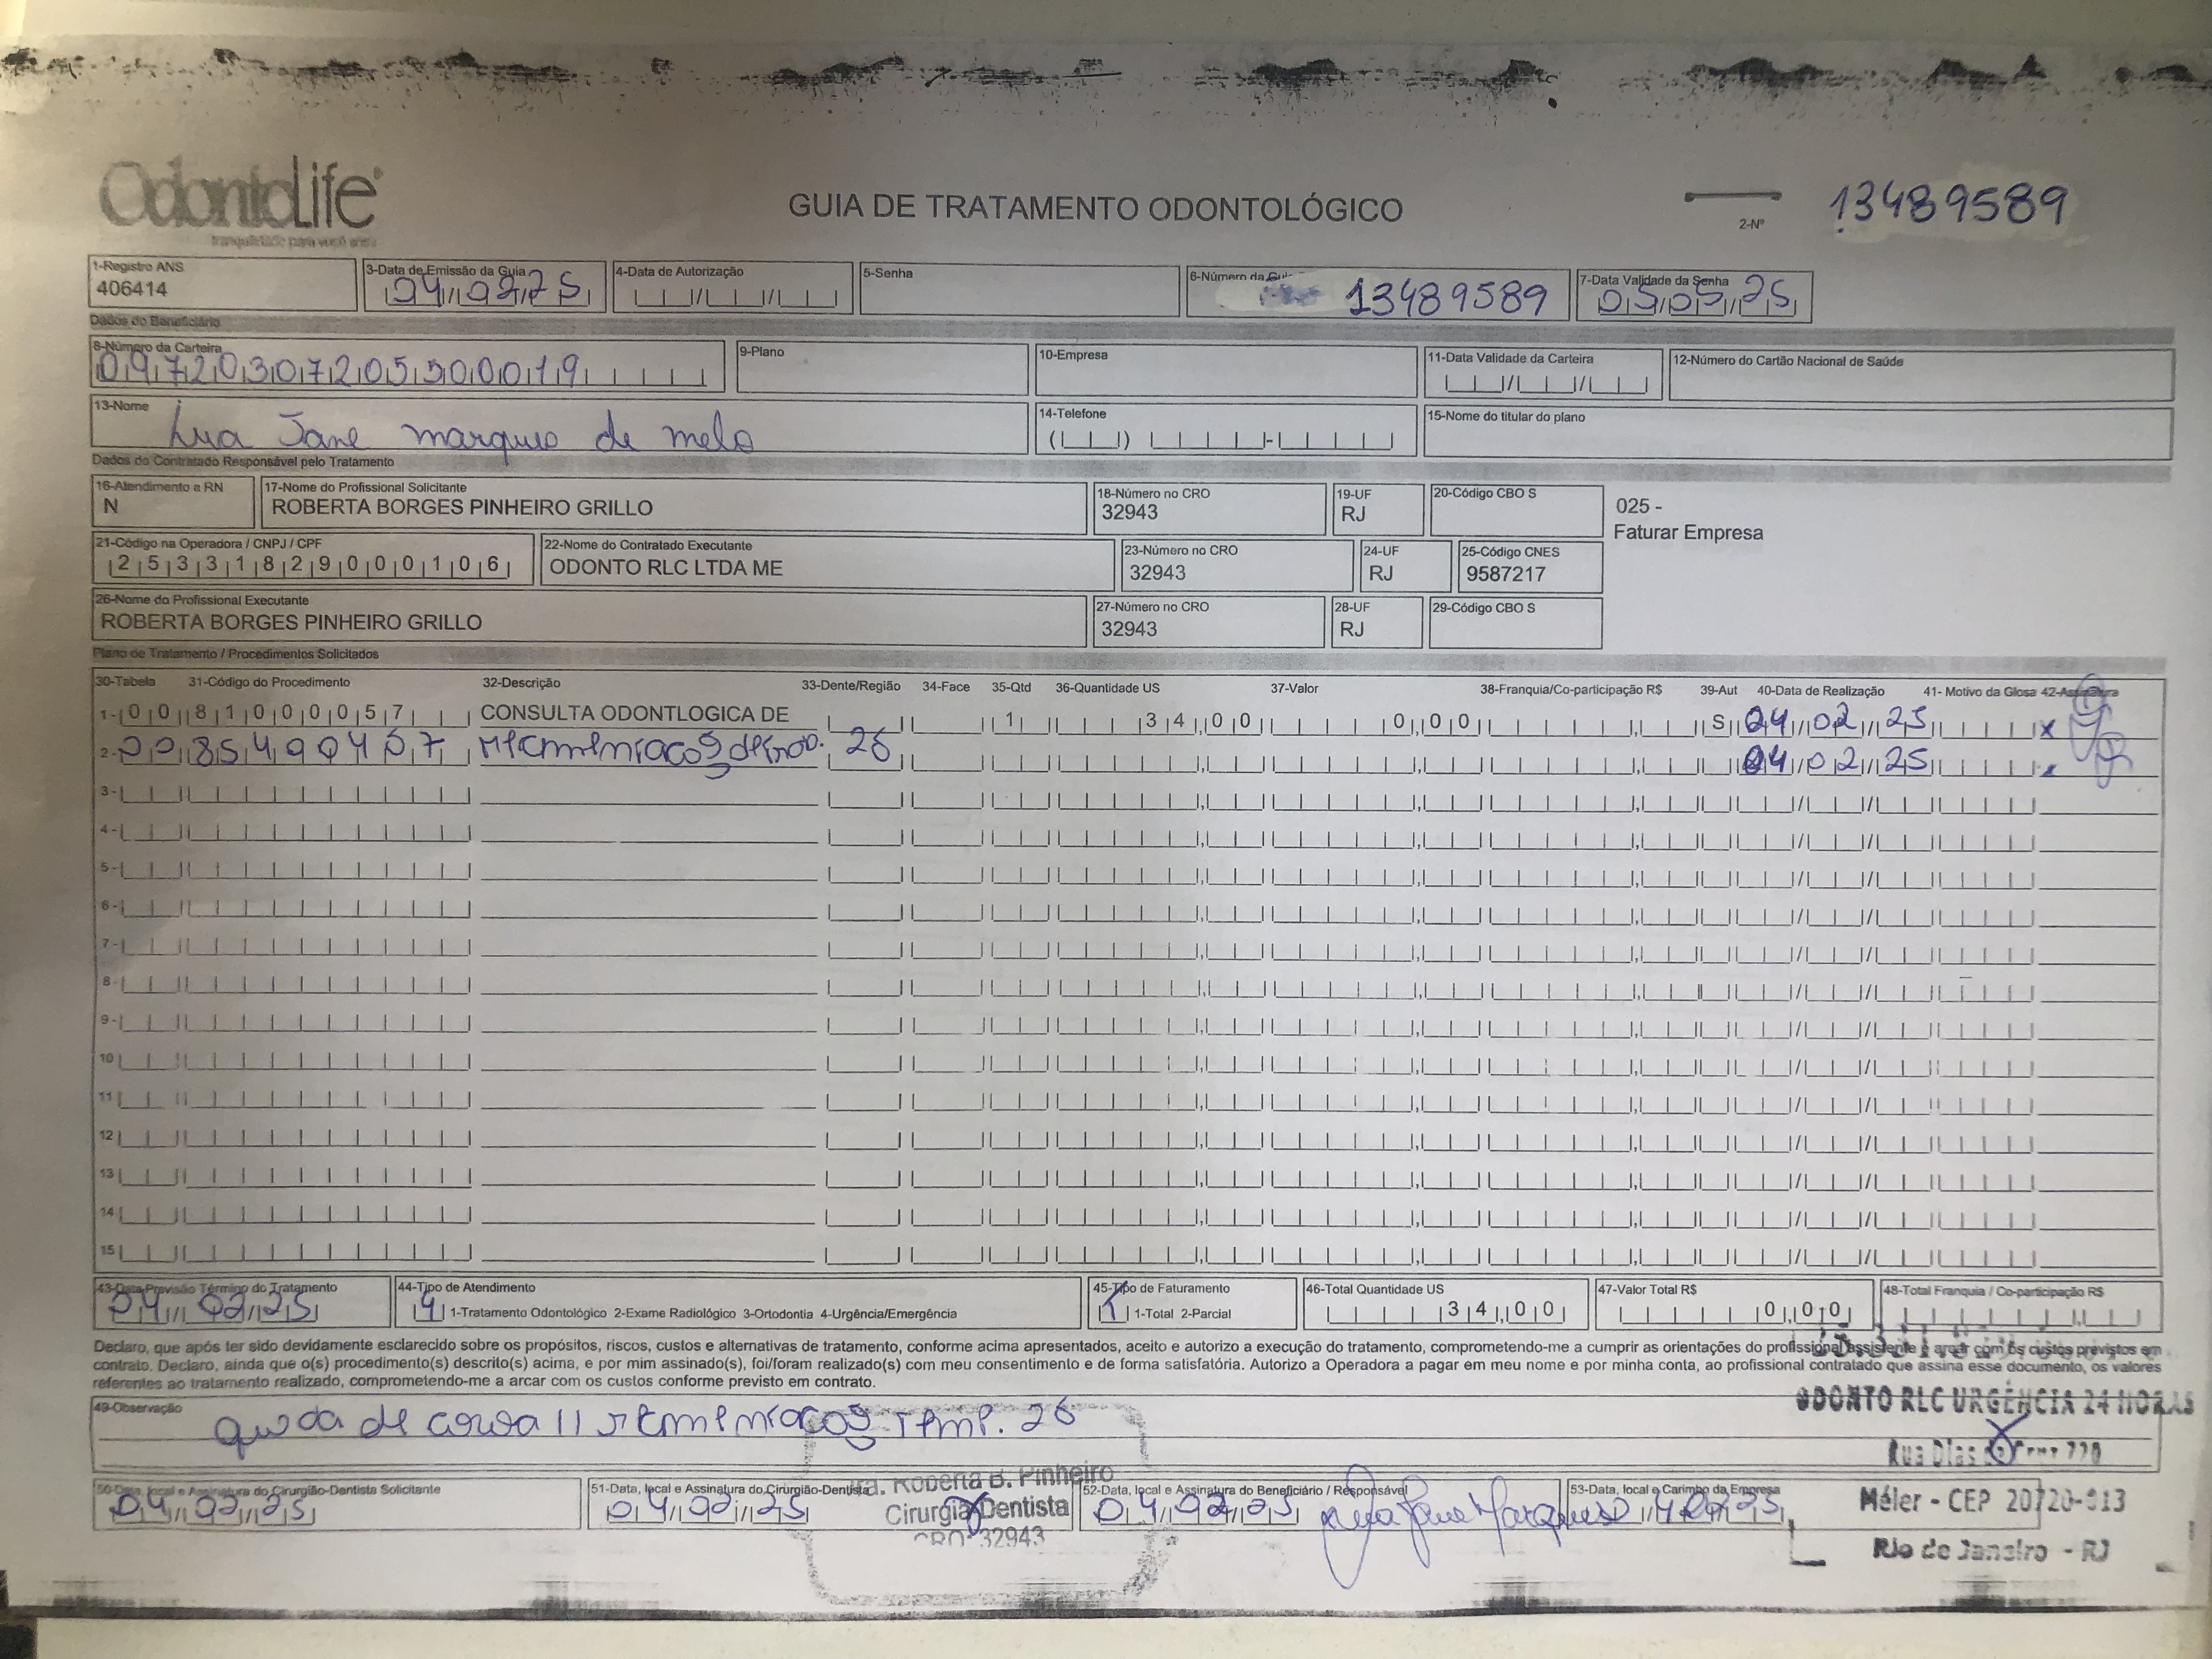 OdontoLife
tranquilidade para você
GUIA DE TRATAMENTO ODONTOLÓGICO
2-Nº 13489589
1-Registro ANS
406414
3-Data de Emissão da Guia
04/02/25
4-Data de Autorização
5-Senha
6-Número da Guia
13489589
7-Data Validade da Senha
05/05/25
Dados do Beneficiário
8-Número da Carteira
9-Plano
10-Empresa
11-Data Validade da Carteira
12-Número do Cartão Nacional de Saúde
13-Nome
Jane marques de melo
14-Telefone
15-Nome do titular do plano
Dados do Contratado Responsável pelo Tratamento
16-Atendimento a RN
N
17-Nome do Profissional Solicitante
ROBERTA BORGES PINHEIRO GRILLO
18-Número no CRO
32943
19-UF
RJ
20-Código CBO S
025 -
Faturar Empresa
21-Código na Operadora / CNPJ / CPF
25331829000106
22-Nome do Contratado Executante
ODONTO RLC LTDA ME
23-Número no CRO
32943
24-UF
RJ
25-Código CNES
9587217
26-Nome do Profissional Executante
ROBERTA BORGES PINHEIRO GRILLO
27-Número no CRO
32943
28-UF
RJ
29-Código CBO S
Plano de Tratamento / Procedimentos Solicitados
30-Tabela 31-Código do Procedimento 32-Descrição 33-Dente/Região 34-Face 35-Qtd 36-Quantidade US 37-Valor 38-Franquia/Co-participação R$ 39-Aut 40-Data de Realização 41- Motivo da Glosa 42-Assinatura
1- 00 81000057 CONSULTA ODONTLOGICA DE 1 34,00 0,00 S 04/02/25 x
2- 26 04/02/25
3-
4-
5-
6-
7-
8-
9-
10
11
12
13
14
15
43-Data Previsão Término do Tratamento
04/02/25
44-Tipo de Atendimento
4 1-Tratamento Odontológico 2-Exame Radiológico 3-Ortodontia 4-Urgência/Emergência
45-Tipo de Faturamento
1 1-Total 2-Parcial
46-Total Quantidade US
34,00
47-Valor Total R$
0,00
48-Total Franquia / Co-participação R$
Declaro, que após ter sido devidamente esclarecido sobre os propósitos, riscos, custos e alternativas de tratamento, conforme acima apresentados, aceito e autorizo a execução do tratamento, comprometendo-me a cumprir as orientações do profissional assistente e arcar com os custos previstos em
contrato. Declaro, ainda que o(s) procedimento(s) descrito(s) acima, e por mim assinado(s), foi/foram realizado(s) com meu consentimento e de forma satisfatória. Autorizo a Operadora a pagar em meu nome e por minha conta, ao profissional contratado que assina esse documento, os valores
referentes ao tratamento realizado, comprometendo-me a arcar com os custos conforme previsto em contrato.
49-Observação
queda de coroa // Temp. 26
ODONTO RLC URGÊNCIA 24 HORAS
Rua Dias da Cruz
Méier - CEP 20720-013
Rio de Janeiro - RJ
50-Data, local e Assinatura do Cirurgião-Dentista Solicitante
04/02/25
51-Data, local e Assinatura do Cirurgião-Dentista
04/02/25
Dra. Roberta B. Pinheiro
Cirurgiã Dentista
CRO 32943
52-Data, local e Assinatura do Beneficiário / Responsável
04/02/25
53-Data, local e Carimbo da Empresa